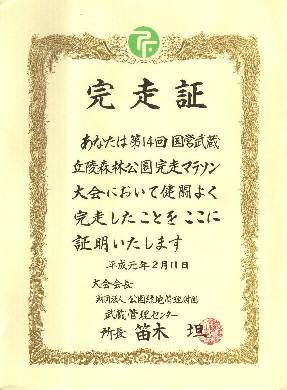 完走証
あなたは第14回国営武蔵
丘陵森林公園完走マラソン
大会において健闘よく
完走したことをここに
証明いたします
平成元年2月11日
大会会長
財団法人公園緑地管理財団
武蔵管理センター
所長 笛木 坦